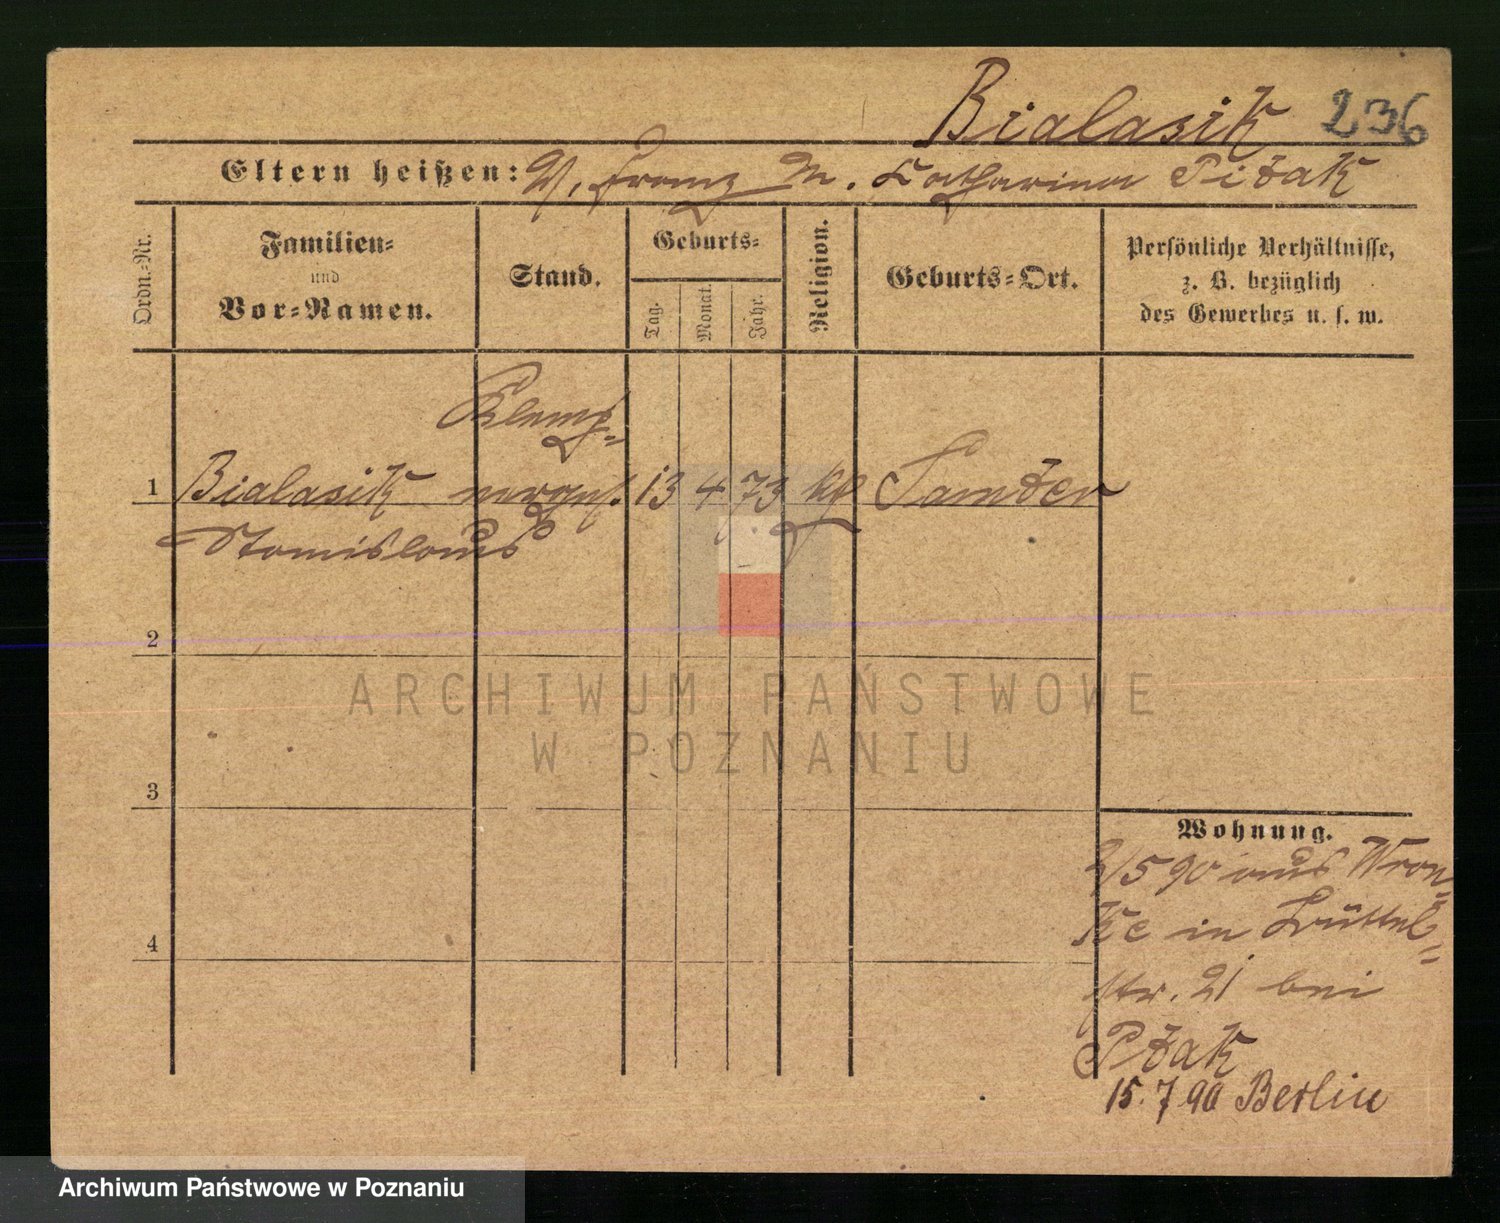 Bialasik 236
Eltern heißen: V. Franz M. Catharina Ptak
Ordn.-Nr.
Familien-
und
Vor-Namen.
Stand.
Geburts-
Tag.
Monat.
Jahr.
Religion.
Geburts-Ort.
Persönliche Verhältnisse,
z. B. bezüglich
des Gewerbes u. s. w.
Klemp-
1 Bialasik nerges. 13 4 73 Samter
Stanislaus
2
3
4
Wohnung.
2/5 90 aus Wron-
ke in
str. 21 bei
Ptak
15.7 90 Berlin
ARCHIWUM PAŃSTWOWE
W POZNANIU
Archiwum Państwowe w Poznaniu